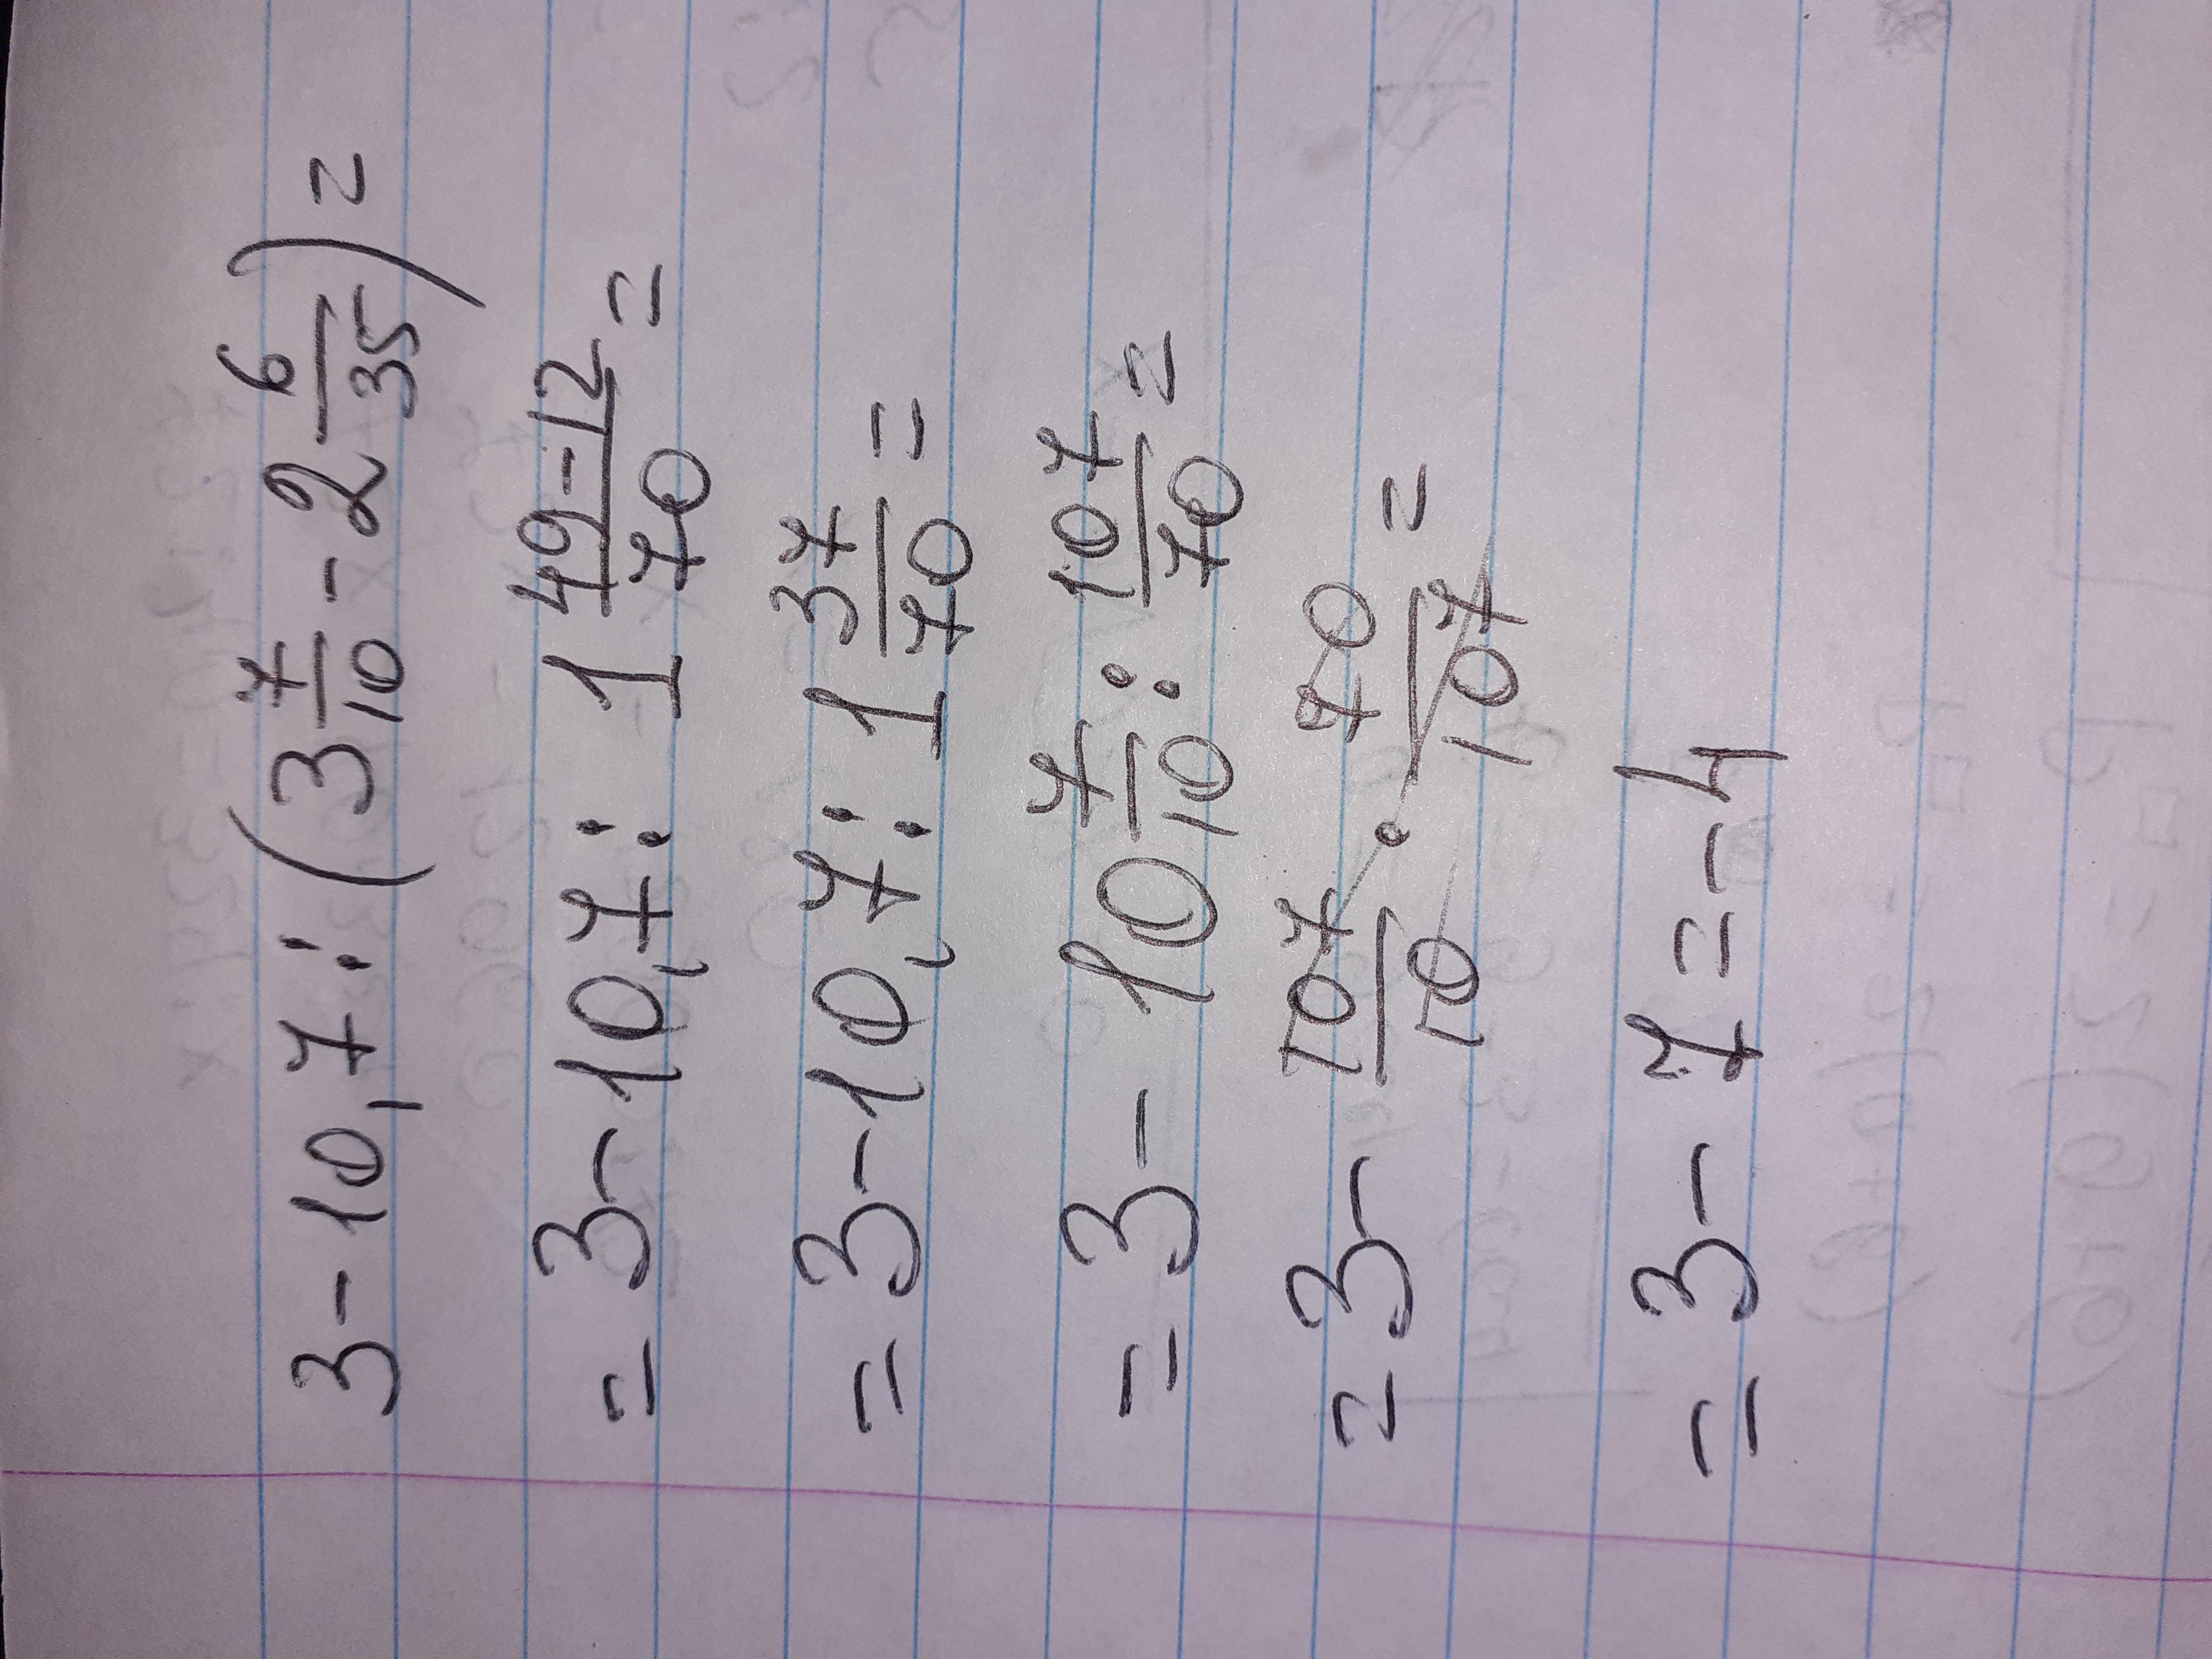 3 - 10,7 : (3 7/10 - 2 6/35) =
= 3 - 10,7 : 1 49-12/70 =
= 3 - 10,7 : 1 37/70 =
= 3 - 10 7/10 : 107/70 =
= 3 - 107/10 · 70/107 =
= 3 - 7 = - 4